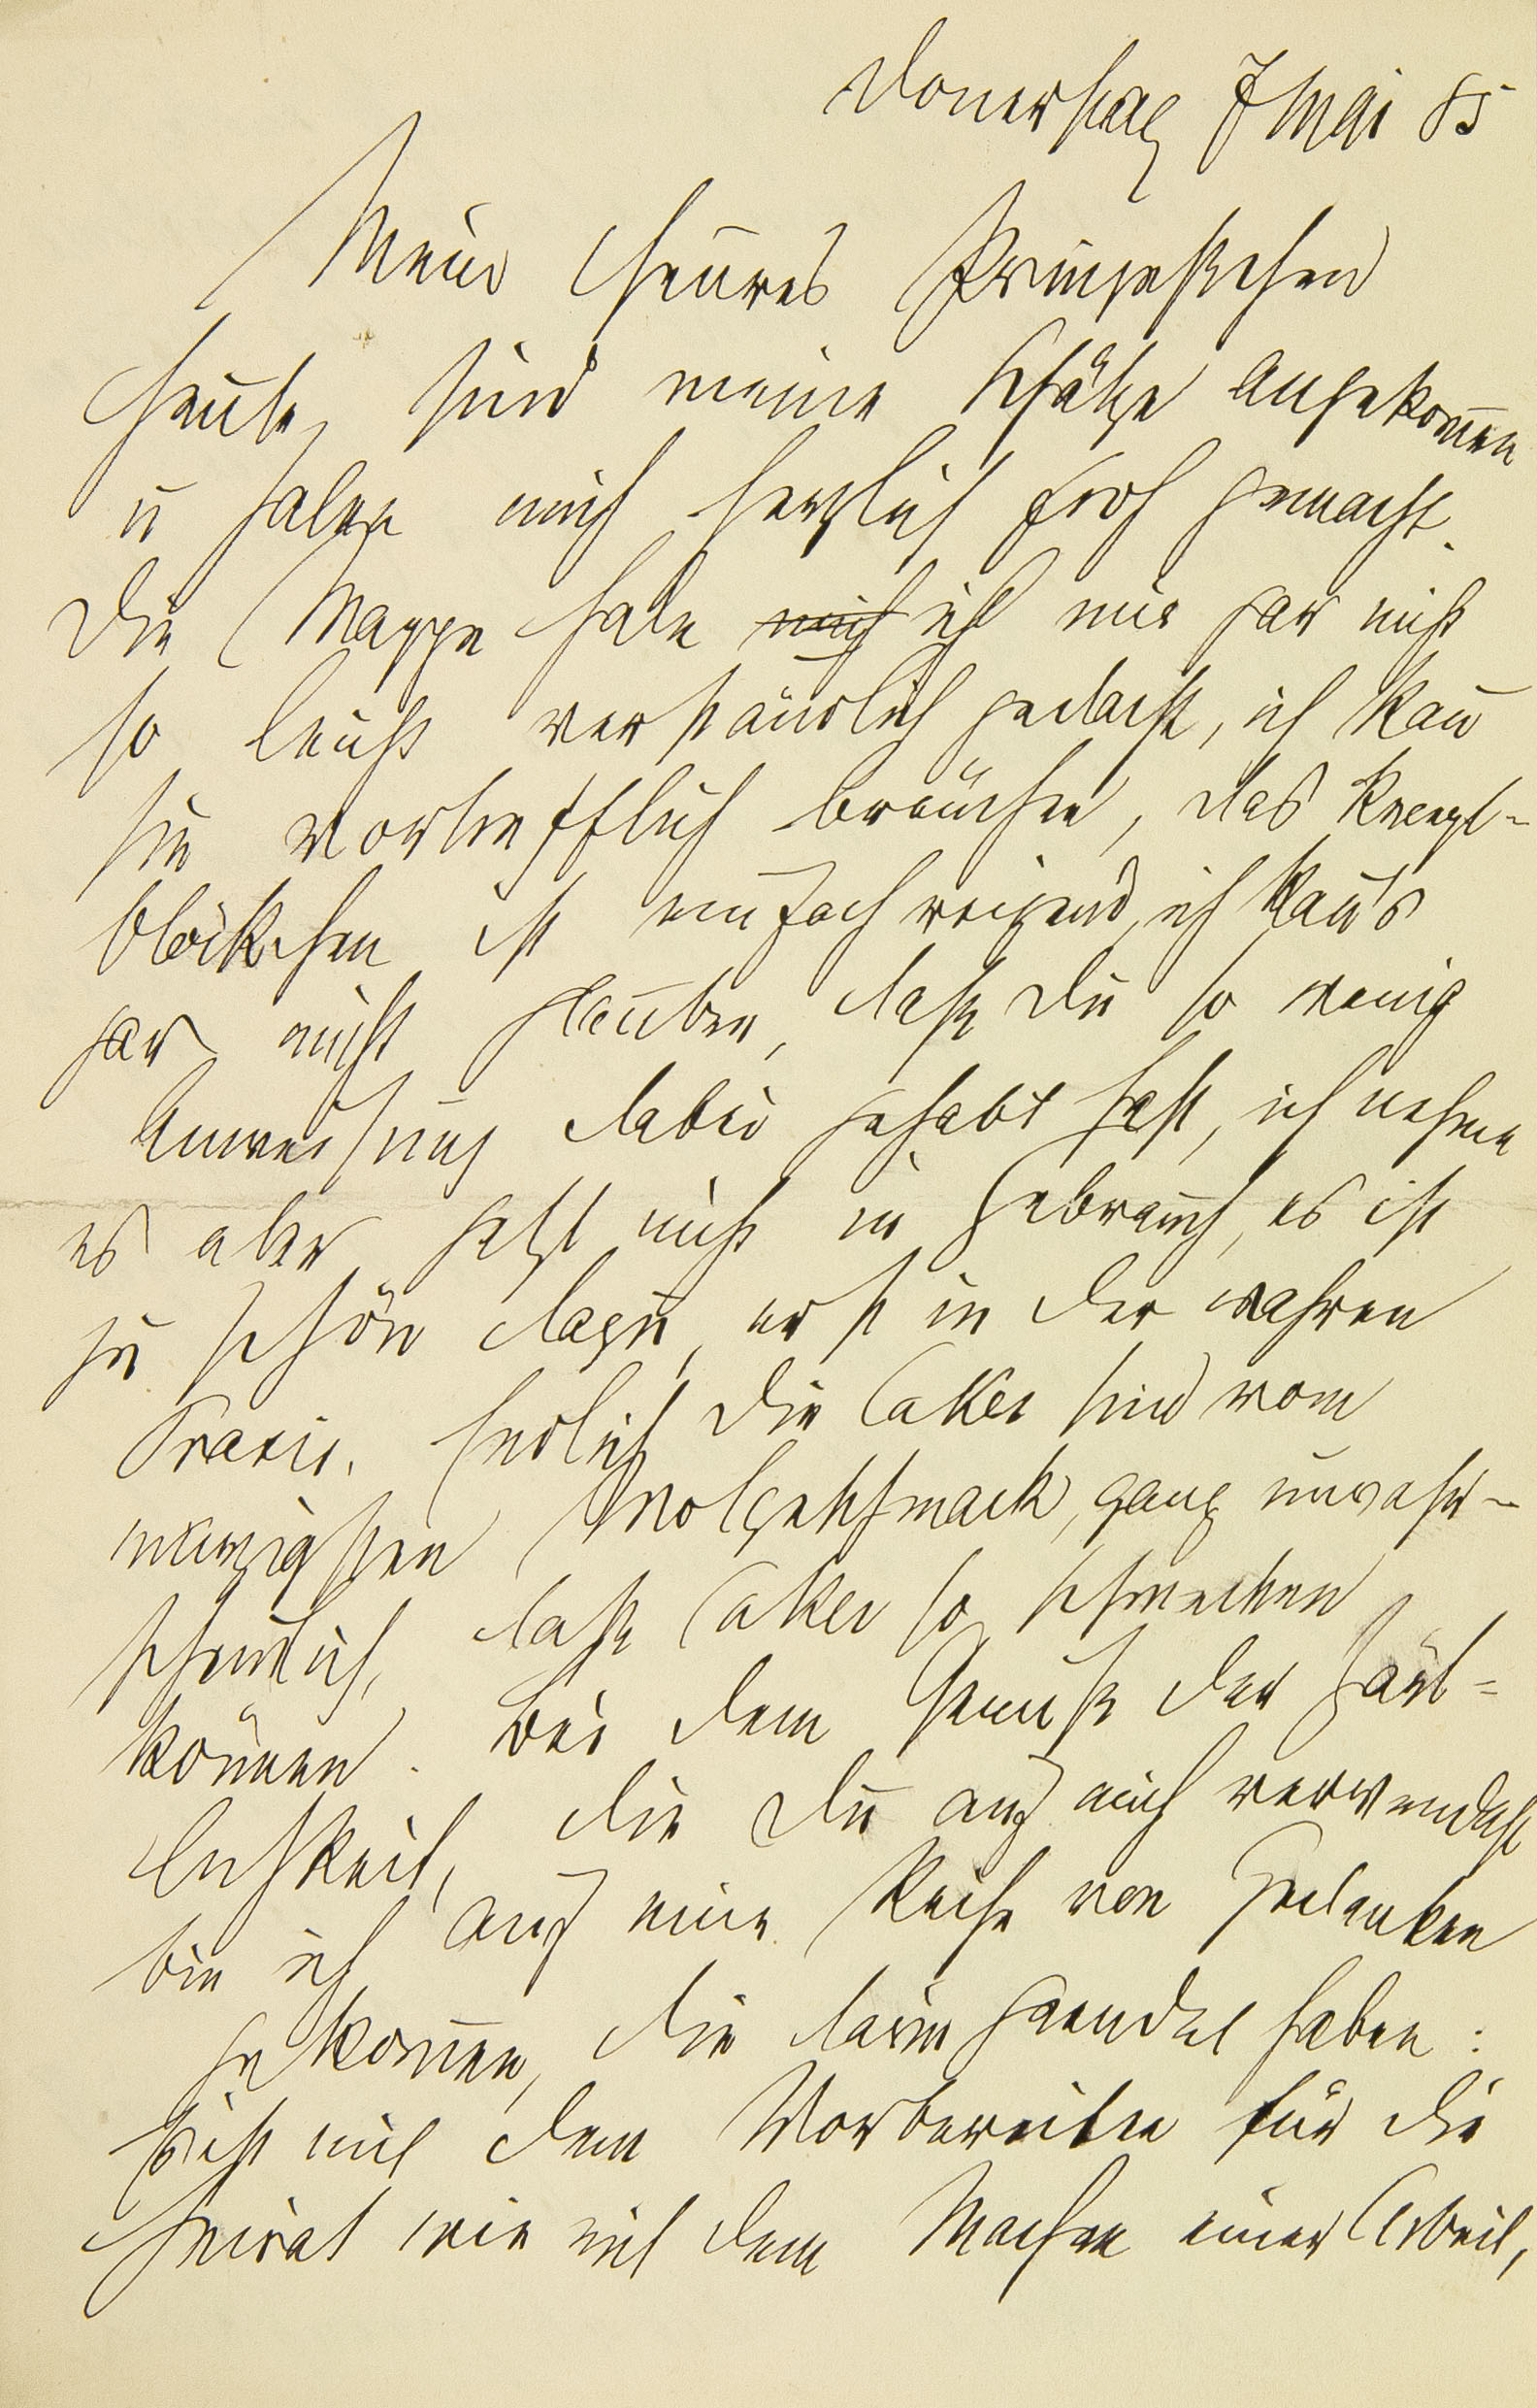 Donerstag 7 Mai 85
Mein theures Prinzeßchen
Heute sind meine Schätze angekom̄en
u haben mich herzlich froh gemacht.
Die Mappe habe mich ich mir gar nicht
so leicht verständlich gedacht, ich kan̄
sie vortrefflich brauchen, das Recept-
blöckchen ist einfach reizend, ich kan̄s
gar nicht glauben, daß Du so wenig
Anweisung dabei gehabt hast, ich nehme
es aber jetzt nicht in Gebrauch, es ist
zu schön dazu, erst in der wahren
Praxis. Endlich die Cakes sind vom
Wolgeschmack, ganz unwahr-
scheinlich, daß Cakes so schmecken
kön̄en. Bei dem Genuß der Zärt-
lichkeit, die Du auf mich verwendest
bin ich auf eine Reihe von Gedanken
gekom̄en, die darin geendet haben:
Es ist mit dem Vorbereiten für die
Heirat wie mit dem Machen einer Arbeit,